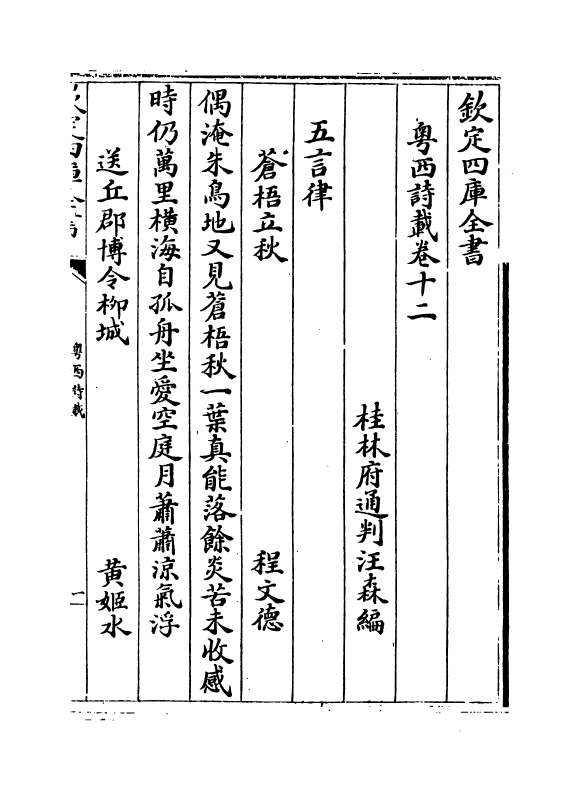 欽定四庫全書
粵西詩載卷十二
桂林府通判汪森編
五言律
蒼梧立秋 程文德
偶淹朱鳥地又見蒼梧秋一葉真能落餘炎苦未收感
時仍萬里橫海自孤舟坐愛空庭月蕭蕭涼氣浮
送丘郡博令柳城 黃姬水
粵西詩載